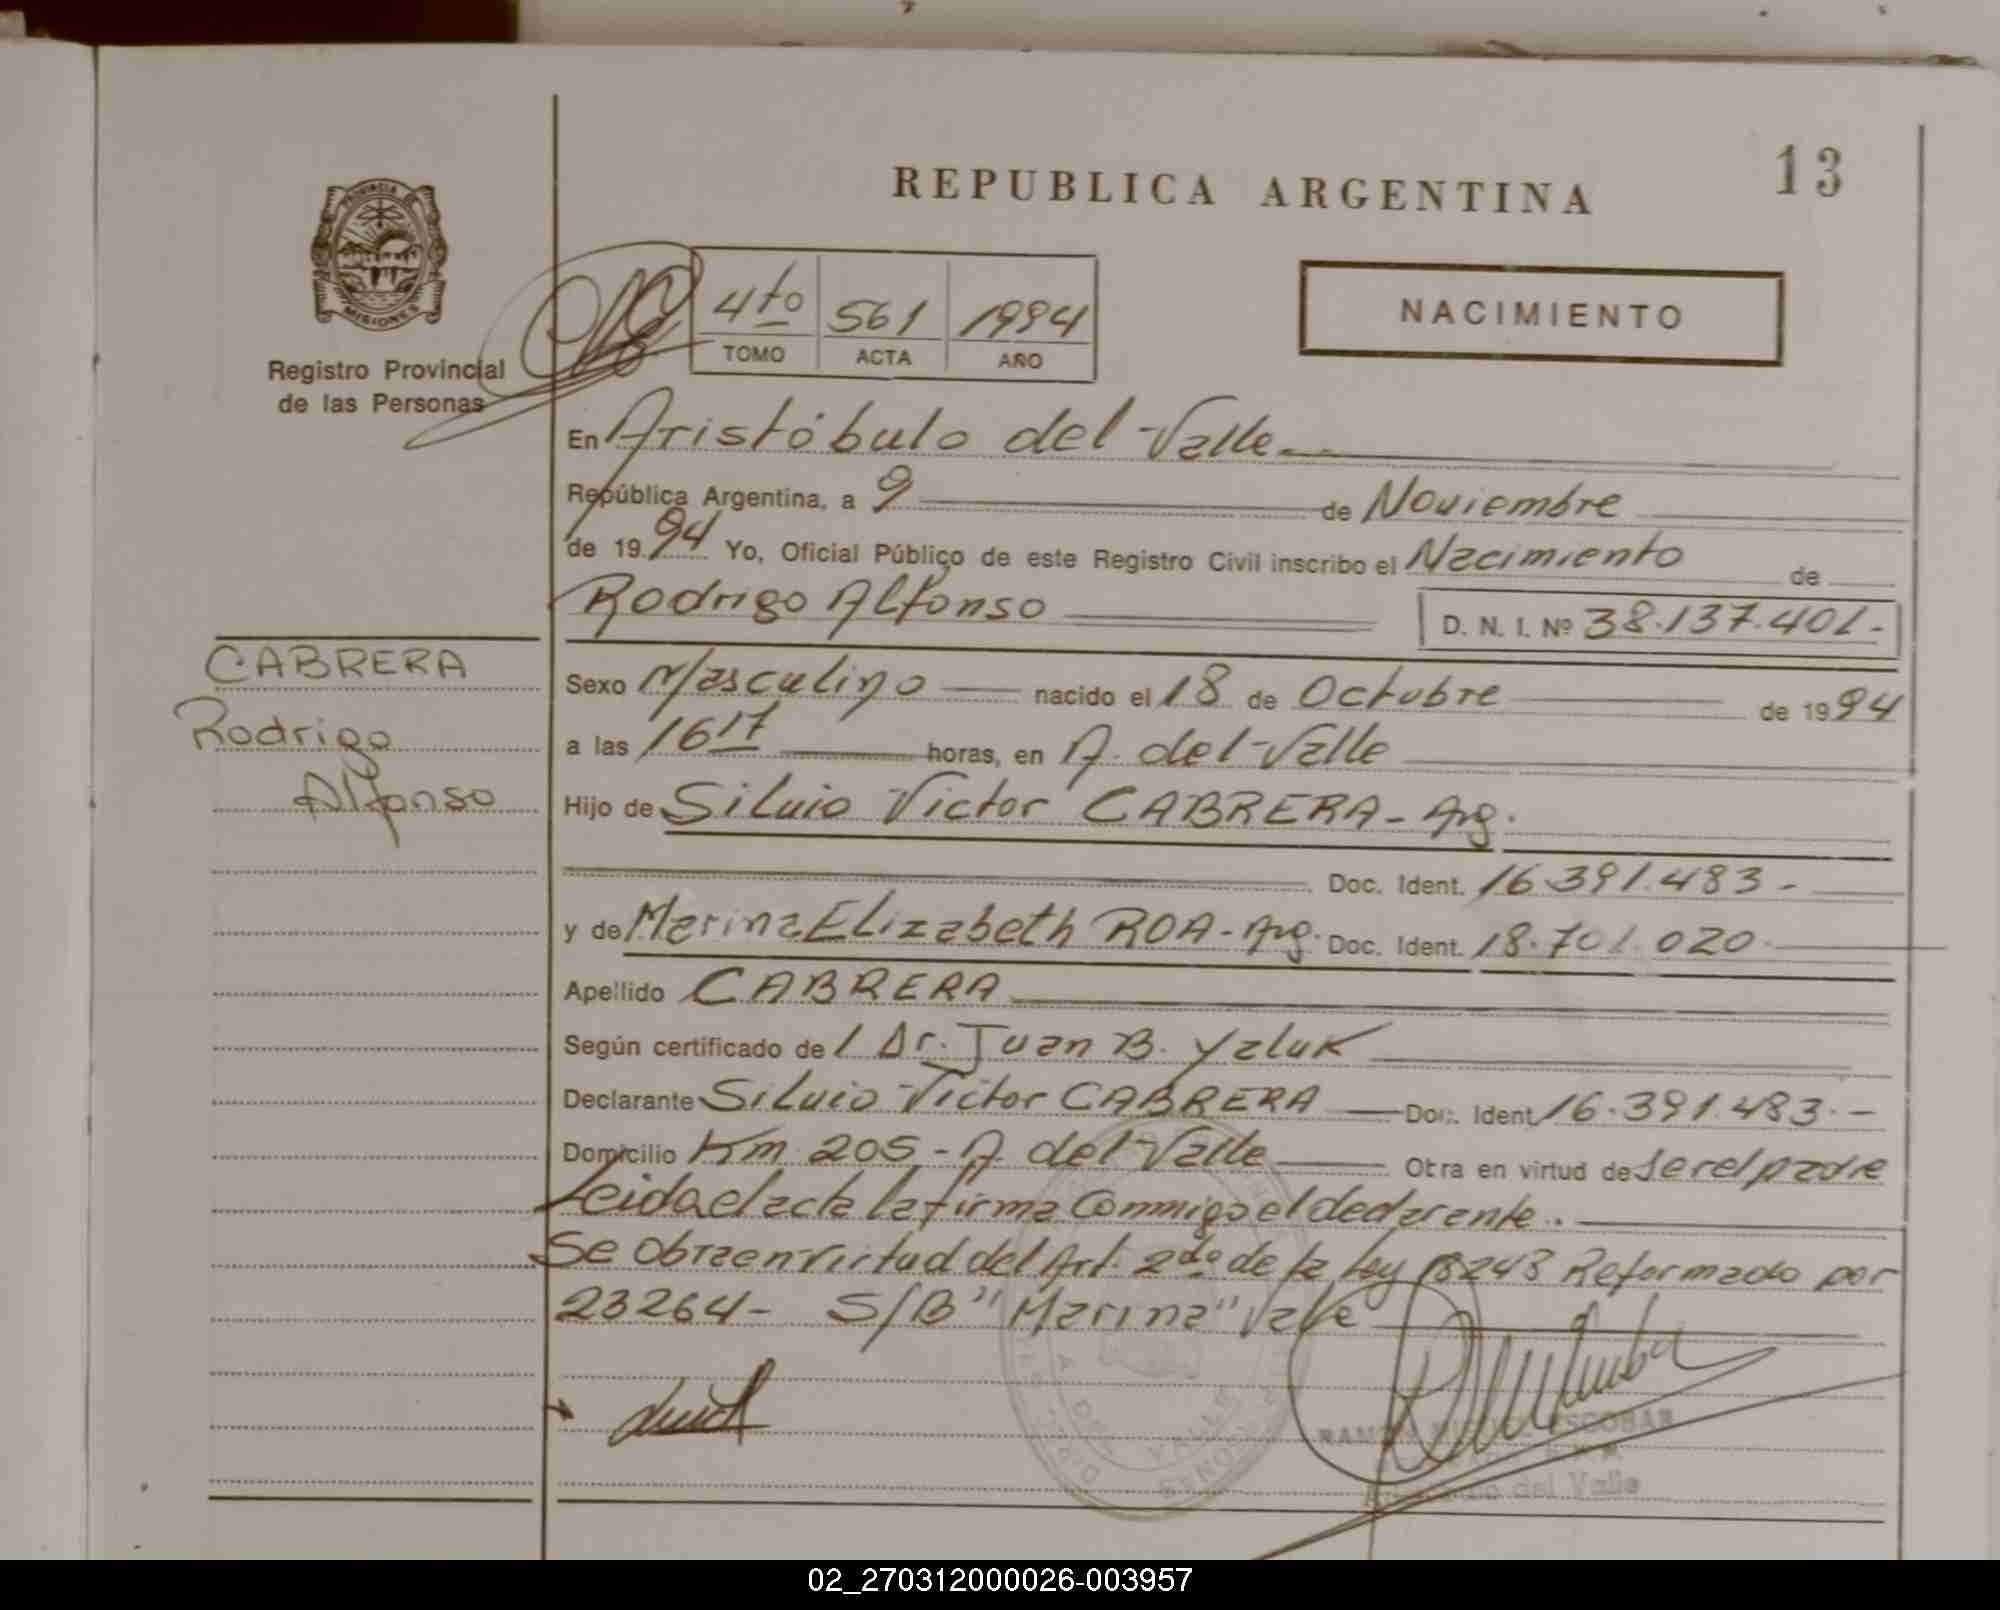 REPUBLICA ARGENTINA
13
PROVINCIA DE
MISIONES
Registro Provincial
de las Personas
4to 561 1994
TOMO ACTA AÑO
NACIMIENTO
En Aristóbulo del Valle
República Argentina, a 9 de Noviembre
de 1994 Yo, Oficial Público de este Registro Civil inscribo el Nacimiento de
Rodrigo Alfonso D. N. I. Nº 38.137.401.-
CABRERA
Rodrigo
Alfonso
Sexo Masculino nacido el 18 de Octubre de 1994
a las 16 17 horas, en A. del Valle
Hijo de Silvio Victor CABRERA - Arg.
Doc. Ident. 16.391.483 -
y de Marina Elizabeth ROA - Arg. Doc. Ident. 18.701.020
Apellido CABRERA
Según certificado de l Dr. Juan B. Yaluk
Declarante Silvio Victor CABRERA Doc. Ident 16.391.483.-
Domicilio Km 205 - A. del Valle Obra en virtud de ser el padre
Leida el acta la firma conmigo el declarante.
Se obra en virtud del Art. 2do de la Ley 18248 Reformado por
23264 - S/B "Marina" Vale
RAMON MIGUEL ESCOBAR
del Valle
A. DEL VALLE
02_270312000026-003957